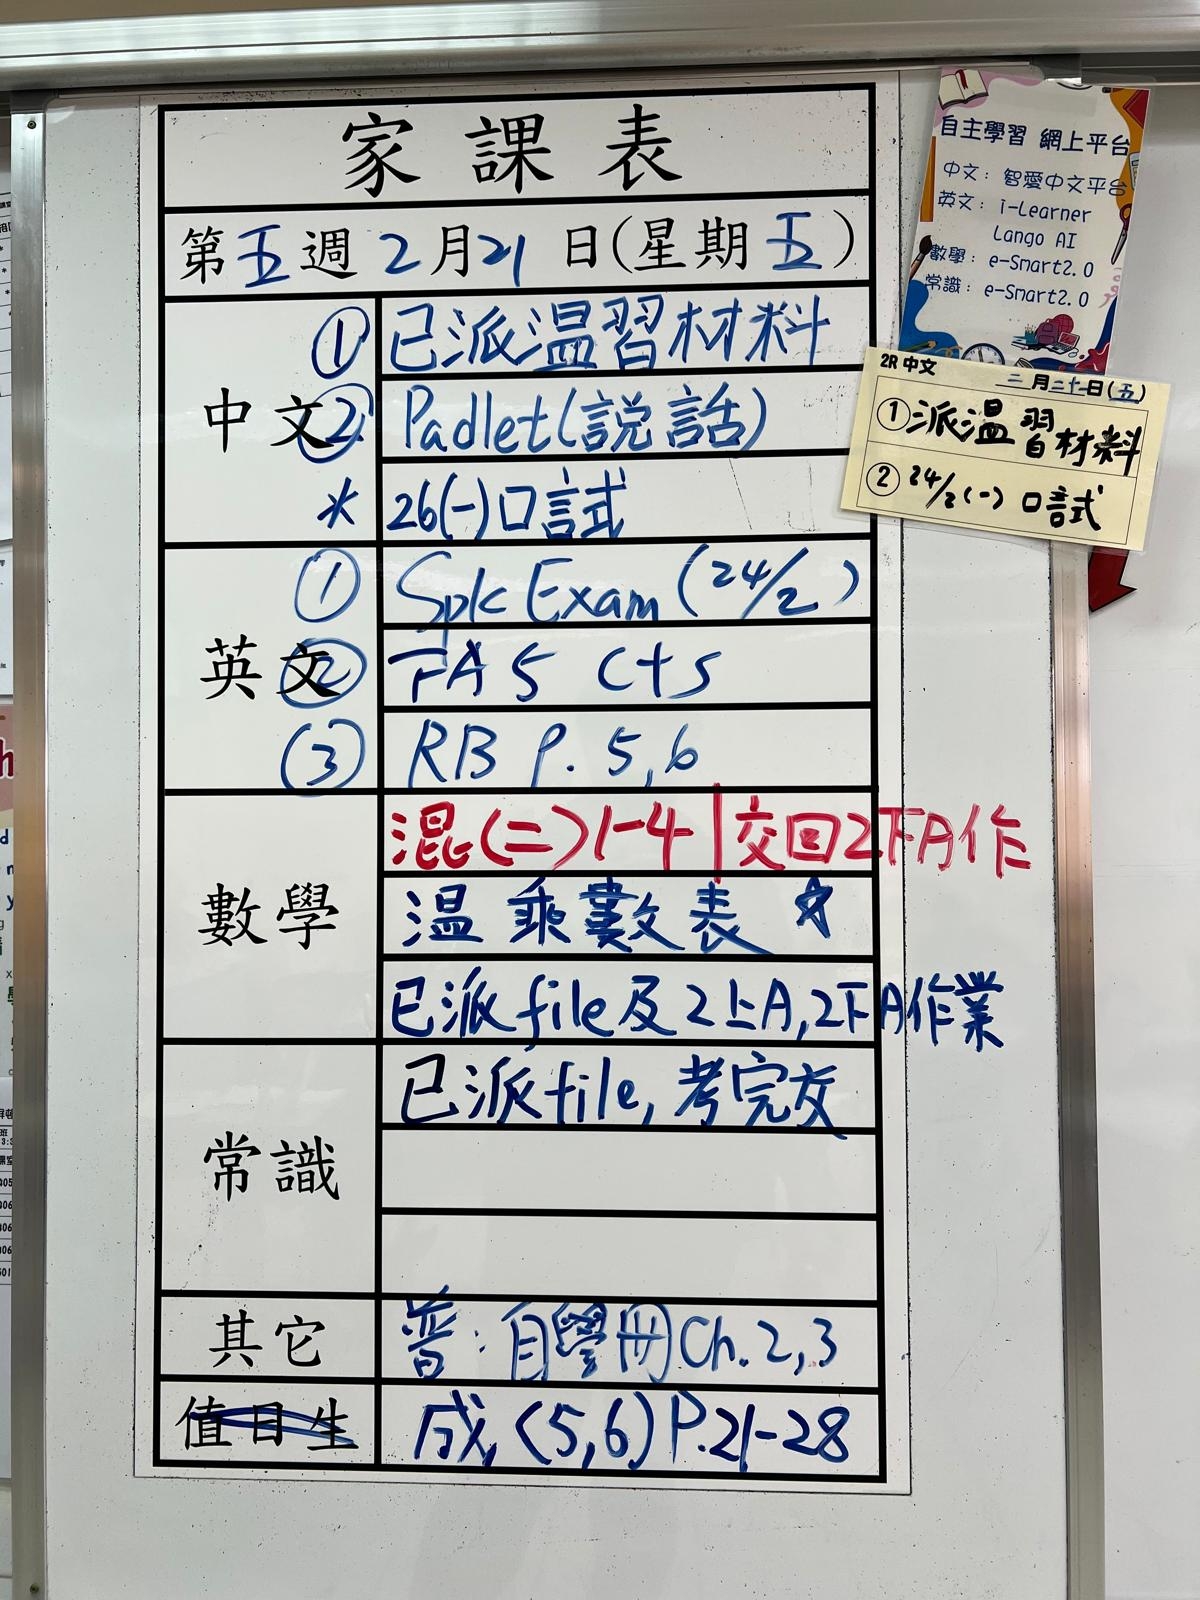 家課表
第五週 2月21日(星期五)
中文
① 已派溫習材料
② Padlet(説話)
* 26(一)口試
英文
① Spk Exam (24/2)
② FA5 C+S
③ RB P. 5,6
數學
混(二)1-4 | 交回2下A作
溫乘數表 ☆
已派file及2上A,2下A作業
常識
已派file,考完交
其它
普:自學冊Ch.2,3
值日生
成,(5,6)P.21-28
自主學習 網上平台
中文:智愛中文平台
英文:i-Learner
Lango AI
數學:e-Smart2.0
常識:e-Smart2.0
2R 中文 二月二十一日(五)
①派溫習材料
②24/2(一)口試